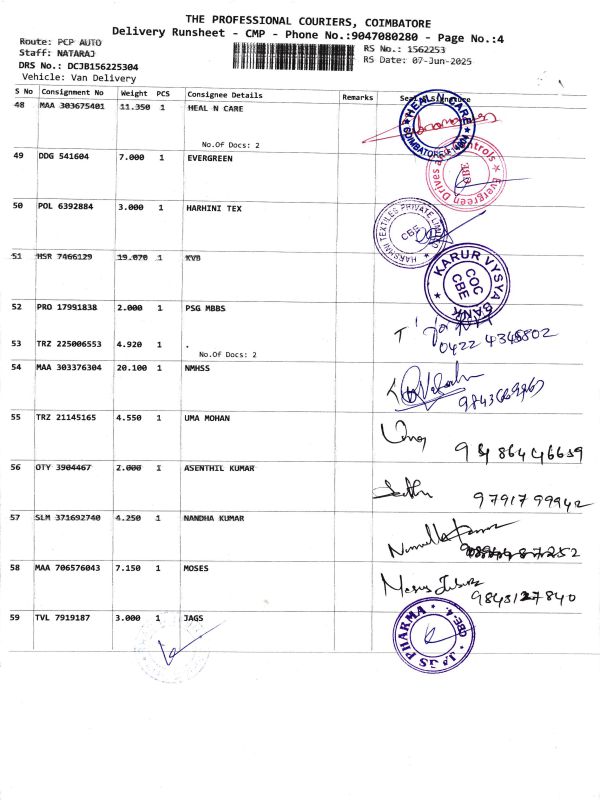 THE PROFESSIONAL COURIERS, COIMBATORE
Delivery Runsheet - CMP - Phone No.:9047080280 - Page No.:4
Route: PCP AUTO
Staff: NATARAJ
RS No.: 1562253
DRS No.: DCJB156225304
RS Date: 07-Jun-2025
Vehicle: Van Delivery
S No Consignment No Weight PCS Consignee Details Remarks Seal Signature
48 MAA 303675401 11.350 1 HEAL N CARE
HEAL N CARE
No.Of Docs: 2
49 DDG 541604 7.000 1 EVERGREEN
Evergreen Drives
50 POL 6392884 3.000 1 HARHINI TEX
HARSHNI TEXTILES PRIVATE LIMITED
CBE
51 HSR 7466129 19.070 1 KVB
KARUR VYSYA BANK
COC
CBE
52 PRO 17991838 2.000 1 PSG MBBS
53 TRZ 225006553 4.920 1 .
No.Of Docs: 2
54 MAA 303376304 20.100 1 NMHSS
55 TRZ 21145165 4.550 1 UMA MOHAN
Uma
56 OTY 3904467 2.000 1 ASENTHIL KUMAR
9791799942
57 SLM 371692740 4.250 1 NANDHA KUMAR
58 MAA 706576043 7.150 1 MOSES
9843127840
59 TVL 7919187 3.000 1 JAGS
JAGS PHARMA
CBE-4